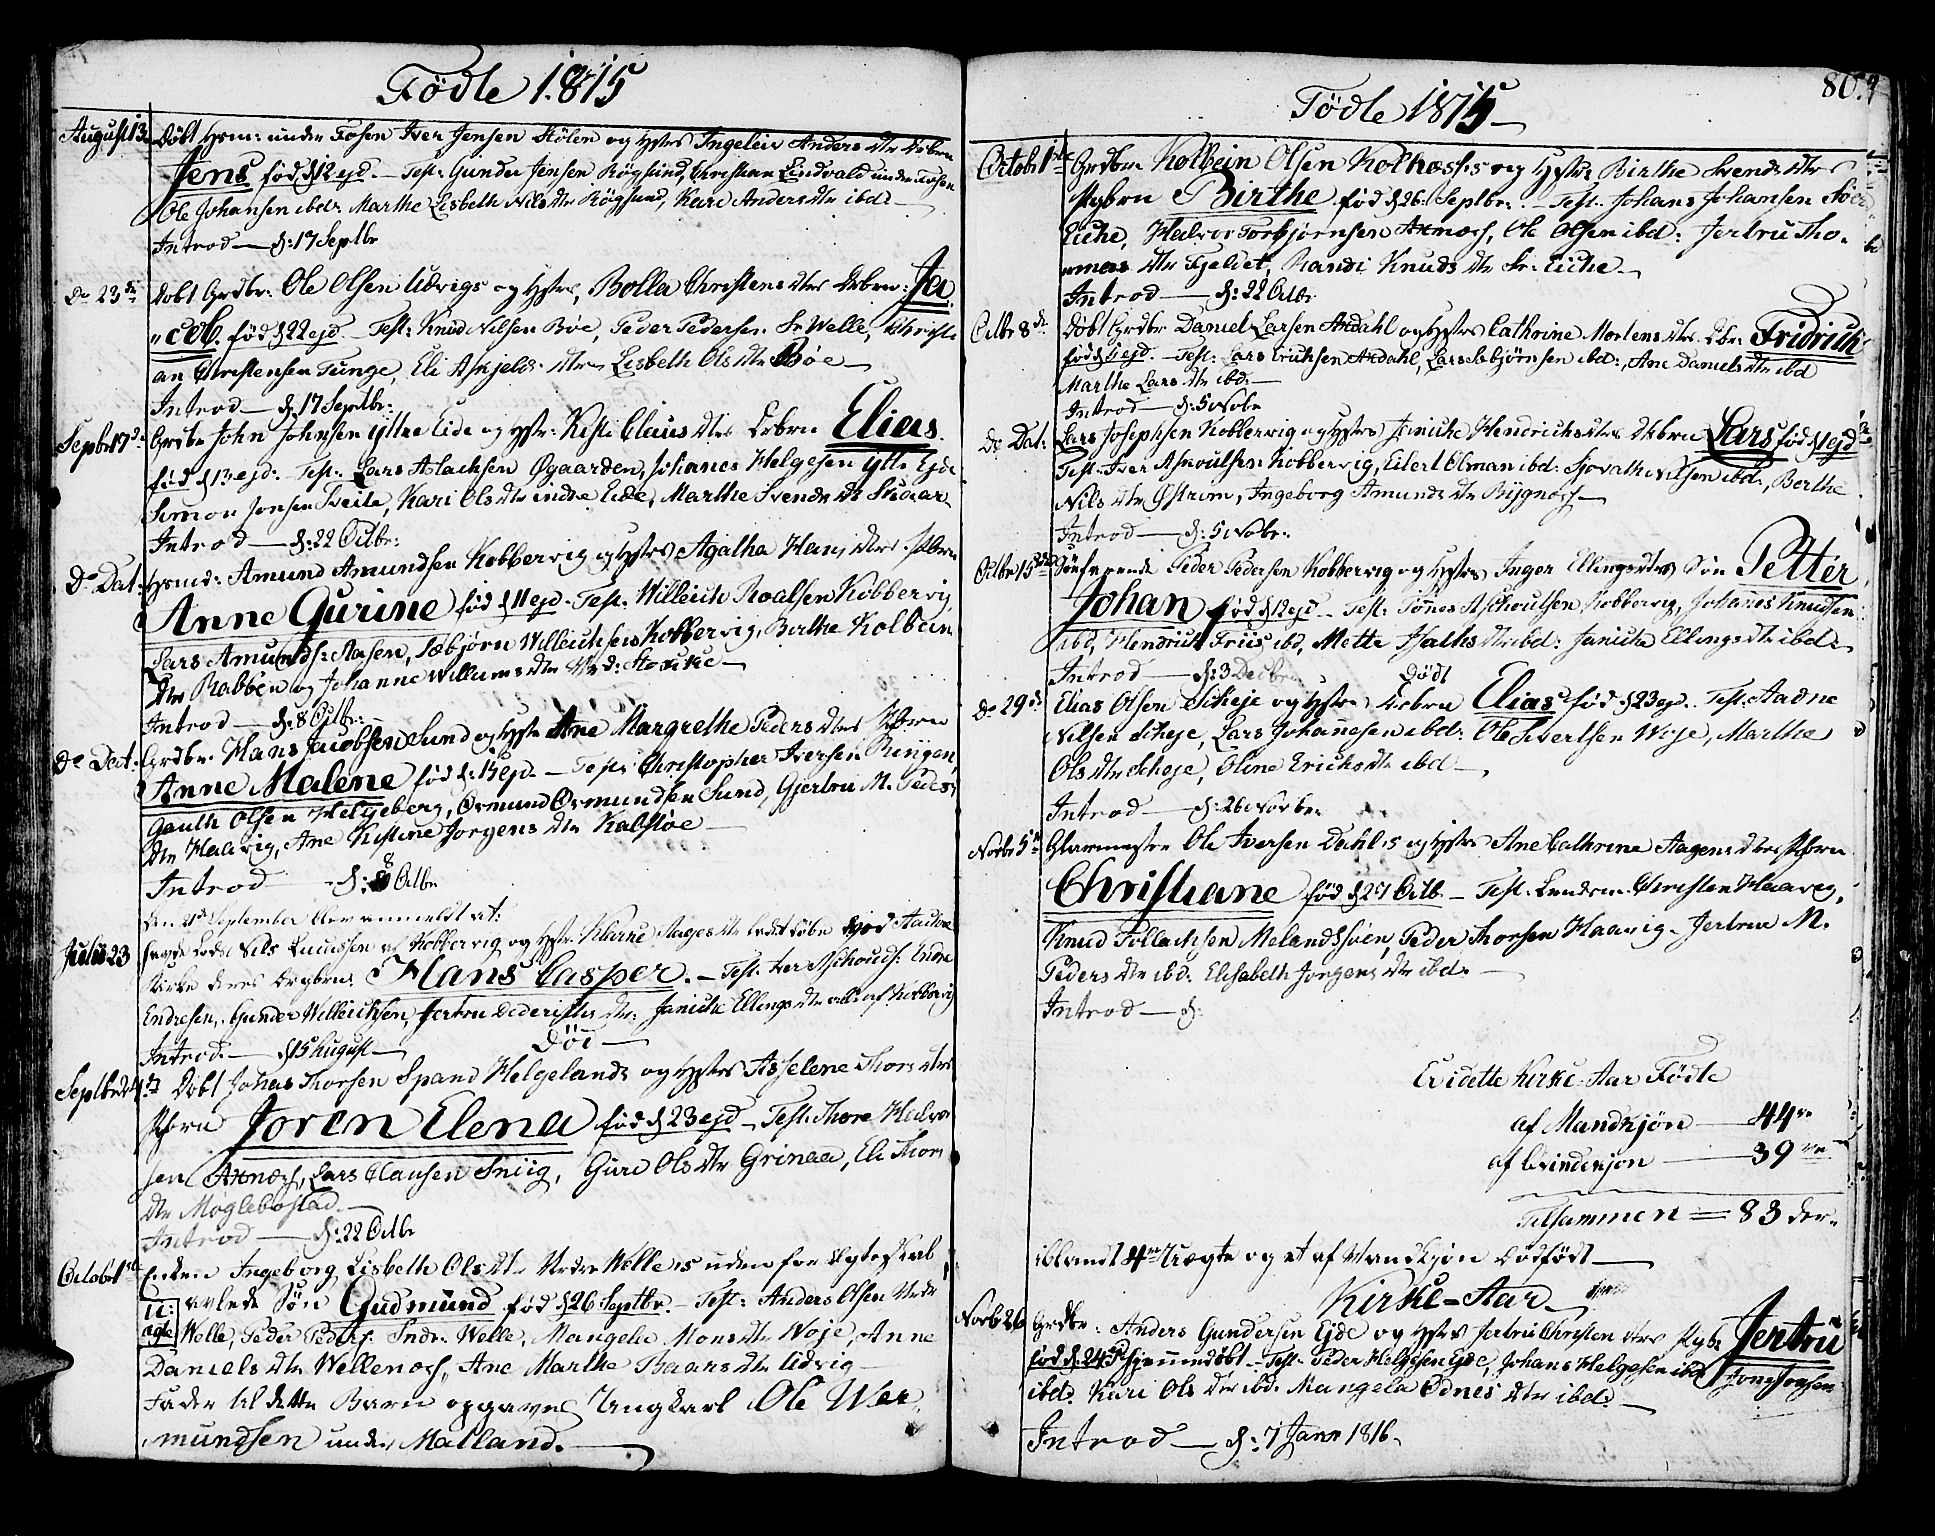 Födte 1815
August 13
Döbt Hsm: under Fosen Iver Jensen Stölen og Hstr Ingeleiv Anders Dtr Drbrn
Jens föd d 12 ejd. Test: Gunder Jensen Rögsund, Christian Lindvald under Fosen
Ole Johansen ibd: Marthe Lisbeth Nils Dtr Rögsund, Kari Anders Dtr ibd
Introd — d: 17 Septbr
Do 23
Döbt Grdbr: Ole Olsen Udvigs og Hstr, Bolla Christens Dtrs Drbrn: Ja
cob. föd d 22 ejd. Test: Knud Nilsen Böe, Peder Pedersen Welle, Christi
an Christensen Tunge, Eli Askjels Dtr Lisbeth Ols Dtr Böe
Introd — d: 17 Septbr:
Septbr 17
Grdbr John Johnsen yttre Eide og Hstr: Kisti Claus Dtrs Drbrn Elias
föd d 13 ejd: Test: Lars Aslachsen Øgaarden, Johanes Helgesen ytt: Ejde
Simon Jonsen Tveite, Kari Ols Dtr indre Eide, Marthe Svends Dtr
Introd — d: 22 Octbr:
Do Dat:
Hsmd: Amund Amundsen Kobbervig og Hstrs Agatha Hans Dtrs
Anne Gurine föd d 11 ejd. Test: Willeich Roalsen Kobbervig
Lars Amunds: Aasen, Sæbjörn Willeichsen Kobbervig, Birthe Kolbein
Dtr Rabben og Johanne Willums Dtr
Introd — d: 8 Octbr:
Do Dat:
Grdbr. Hans Jacobsen Sund og Hstr Ane Margrethe Peders Dtrs
Anne Malene föd d: 15 ejd. — Test: Christopher Iversen Ringen,
Gauth Olsen Helgeberg, Ormund Ormundsen Sund, Gjertru M. Peders
Dtr Haavig, Ane Kistine Jorgens Dtr Kalstöe
Introd — d: 8 Octbr
Den September blev anmeldt at:
Julii 23
Nils Knudsen af Kobbervig og Hstr
Kirke deres Drgbrn: Hans Casper. — Test: Iver
Endresen, Gunder Willeichsen, Jertru Dideriks Dtr: Janicha Ellings Dtr alle af Kobbervig
Introd: — d 15 August Död
Septbr 24
Döbt Johas Thorsen Spand Helgelands og Hstrs Asselene Thors Dtrs
Joren Elena föd d 23 ejd — Test: Thore Halvor
sen Axnæs, Lars Clausen Sniig, Guri Ols Dtr Grinaa, Eli Thors
Dtr Möglebostad.
Introd — d: 22 Octbr
Octobr 1
Enken Ingeborg Lisbeth Ols Dtr Nedre Welles uden for Ægteskab
avlede Sön Gudmund föd d 26 Septbr. — Test: Anders Olsen Nedr
U: ægte
Welle, Peder Peders: Welle, Mangela Mons Dtr Woje, Anne
Daniels Dtr Wellenæs, Ane Marthe Baars Dtr Udvig
Fader til dette Barn opgaves Ungkarl Ole Wer
mundsen under Malland.
80.
Födte 1815
Octobr 1
Grdbr. Kolbein Olsen Kolnæs's og Hstrs Birthe Svends Dtrs
Pigbrn Birthe föd d 26 Septbr: — Test. Johans Johansen
Eiche, Halvor Torbjörnsen Axnæs, Ole Olsen ibd: Jertru Tho
mas Dtr Fjeldet, Randi Knuds Dtr Eiche
Introd — d: 22 Octbr
Octbr 8
Döbt Grdbr Daniel Larsen Axdahl og Hstrs Cathrine Mortens Dtrs Dbr. Fridrich
föd d ejd — Test: Lars Erichsen Axdahl, Lars Isbjörnsen ibd:, Ane Daniels Dtr ibd
Marthe Lars Dtr ibd.
Introd — d: 5 Nobr
Do Dat:
Lars Josephsen Kobbervig og Hstrs Janiche Hendrichs Dtrs Drbrn Lars föd d ejd
Test: Iver Askoulsen Kobbervig, Eilert Elman ibd: Nilsen ibd:, Berthe
Nils Dtr Østrem, Ingeborg Amunds Dtr Bygnæs
Introd — d: 5 Nobr:
Octbr 15
Söefarende Peder Pedersen Kobbervig og Hstrs Inger Ellings Dtrs Sön Petter
Johan föd d 12 ejd — Test: Tönes Aschoulsen Kobbervig, Johanes Knudsen
ibd, Hendrich Friis ibd, Mette Dtr ibd: Janicha Ellings Dtr ibd
Introd — d: 3 Decbr Dödt
Do 29
Elias Olsen Scheje og Hstrs Drbrn Elias föd d 23 ejd. Test: Aadne
Nilsen Scheje, Lars Johanesen ibd: Ole Sivertsen Woje, Marthe
Ols Dtr Scheje, Oline Erichs Dtr ibd
Introd — d: 26 Novbr.
Novbr 5
Glarmester Ole Iversen Dahls og Hstrs Ane Cathrine Aagens Dtrs
Christiane föd d 27 Octb. — Test: Lendsm. Christen Haavig,
Knud Follachsen Melandssöen, Peder Thorsen Haavig. Jertru M.
Peders Dtr ibd. Elisabeth Jorgens Dtr ibd.
Introd — d:
I dette Kirke-Aar Födte
af Mandkjön — 44
af Qvindekjön — 39
Tilsammen = 83 der
iblandt 4 Uægte og et af Mandkjön Dödfödt
Kirke-Aar
Novb 26
Grdbr. Anders Gundersen Ejde og Hstrs Jertru Christen Dtrs Pigb: Jertru
föd d. 24 hjemmedöbt — Test: Peder Helgesen Ejde, Johans Helgesen ibd Jon Jonsen
ibd. Kari Ols Dtr ibd. Mangela Ednes Dtr ibd.
Introd — d: 7 Janr 1816.